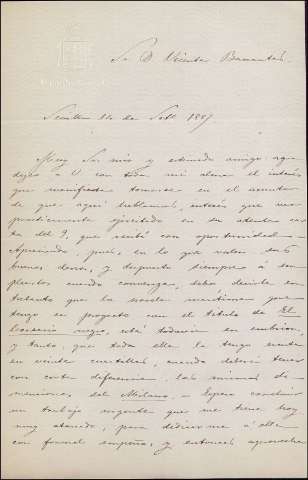 Sr. D. Vicente Barrantes.
Sevilla 14 de Set. 1887
Muy Sr. mio y estimado amigo: agra
dezco a V. con toda mi alma el interés
que manifiesta tomarse en el asunto
de que aquí hablamos, interés que veo
prácticamente ejercitado en su atenta car
ta del 9, que recibí con oportunidad.
Apreciando, pues, en lo que valen sus
buenos deseos, y dispuesto siempre á
cuando convenga, debo decirle en
tretanto que la novela que
tengo en proyecto con el título de El
negro, está todavía en embrion,
y tanto, que toda ella la tengo
en veinte cuartillas, cuando deberá tener
con corta diferencia, las mismas di-
mensiones del . Espero concluir
un trabajo urgente que me tiene hoy
muy atareado, para dedicarme á ella
con formal empeño, y entonces aprovecha